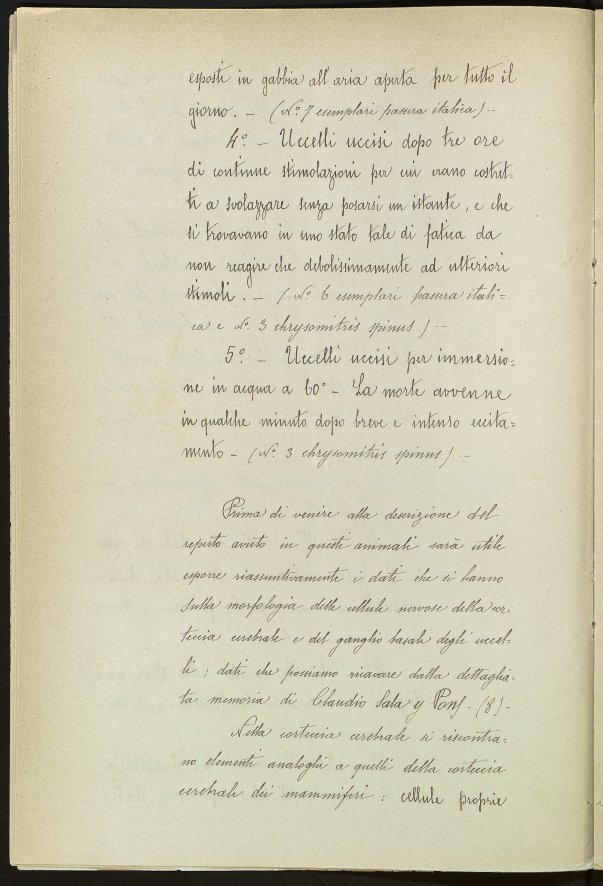 esposti in gabbia all'aria aperta per tutto il
giorno. – (N.º 7 esemplari passera italica) –
4º – Uccelli uccisi dopo tre ore
di continue stimolazioni per cui erano costret-
ti a svolazzare senza posarsi un istante, e che
si trovavano in uno stato tale di fatica da
non reagire che debolissimamente ad ulteriori
stimoli. – (Nº 6 esemplari passera itali=
ca e Nº. 3 chrysomitris spinus) –
5º – Uccelli uccisi per immersio=
ne in acqua a 60º – La morte avvenne
in qualche minuto dopo breve e intenso eccita=
mento – (Nº. 3 chrysomitris spinus) –
Prima di venire alla descrizione del
reperto avuto in questi animali sarà utile
esporre riassuntivamente i dati che si hanno
sulla morfologia delle cellule nervose della cor-
teccia cerebrale e del ganglio basale degli uccel-
li; dati che possiamo ricavare dalla dettaglia-
ta memoria di Claudio Sala y Pons. (8) –
Nella corteccia cerebrale si riscontra-
no elementi analoghi a quelli della corteccia
cerebrale dei mammiferi: cellule proprie